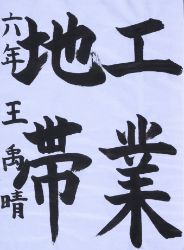 工業
地帯
六年 王禹晴